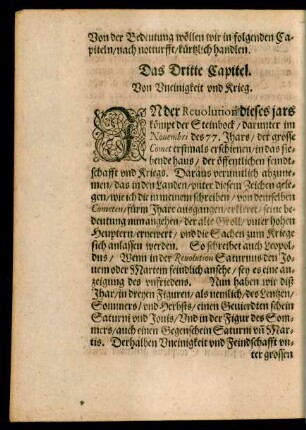 Von der Bedeutung wöllen wir in folgenden Ca-
piteln/nach notturfft/kürtzlich handlen.
Das Dritte Capitel.
Von Vneinigkeit vnd Krieg.
IN der Revolution dieses jars
kömpt der Steinbock/ darunter im
Nouembri des 77. Jhars/ der grosse
Comet erstmals erschienen/in das sie-
bende haus/ der öffentlichen feindt-
schafft vnd Kriegs. Daraus vernunftlich abzune-
men/das in den Landen/vnter diesem Zeichen gele-
gen/wie ich die in meinem schreiben/von demselben
Cometen/fürm Jhare ausgangen/erkleret/seine be-
deutung nun angehen/der alte Groll/vnter hohen
Heuptern/ernewert/vnd die Sachen zum Kriege
sich anlassen werden. So schreibet auch Leopol-
dus/ Wenn in der Revolution Saturnus den Jo-
uem oder Martem feindlich ansehe/sey es eine an-
zeigung des vnfriedens. Nun haben wir diß
Jhar/in dreyen Figuren/als nemlich/des Lentzen/
Sommers/vnd Herbsts/einen Geuierdten schein
Saturni vnd Jouis/Vnd in der Figur des Som-
mers/auch einen Gegenschein Saturni vñ Mar-
tis. Derhalben Vneinigkeit vnd Feindschafft vn-
ter grossen